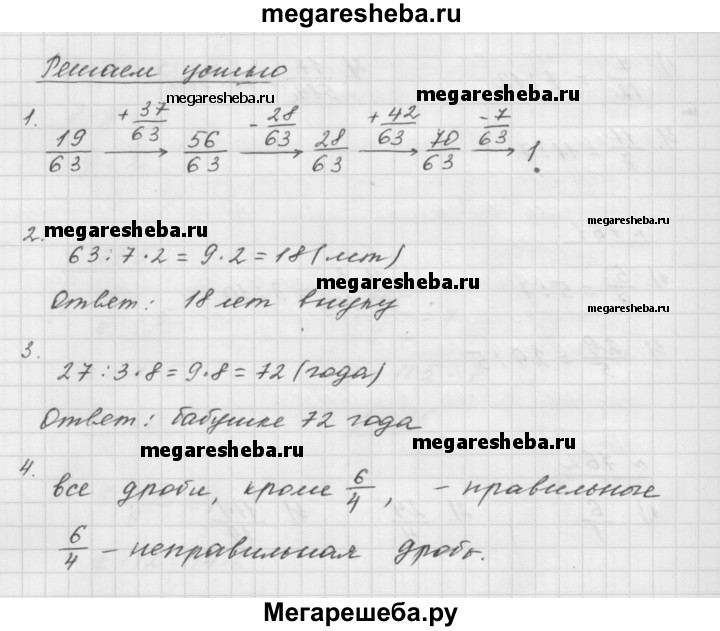 megaresheba.ru
Решаем устно
megaresheba.ru
megaresheba.ru
1. 19/63 → +37/63 → 56/63 → -28/63 → 28/63 → +42/63 → 70/63 → -7/63 → 1.
megaresheba.ru
megaresheba.ru
2. 63 : 7 · 2 = 9 · 2 = 18 (лет)
megaresheba.ru
Ответ: 18 лет внуку
megaresheba.ru
3. 27 : 3 · 8 = 9 · 8 = 72 (года)
Ответ: бабушке 72 года
megaresheba.ru
megaresheba.ru
4. все дроби, кроме 6/4, - правильные
6/4 - неправильная дробь.
Мегарешеба.ру